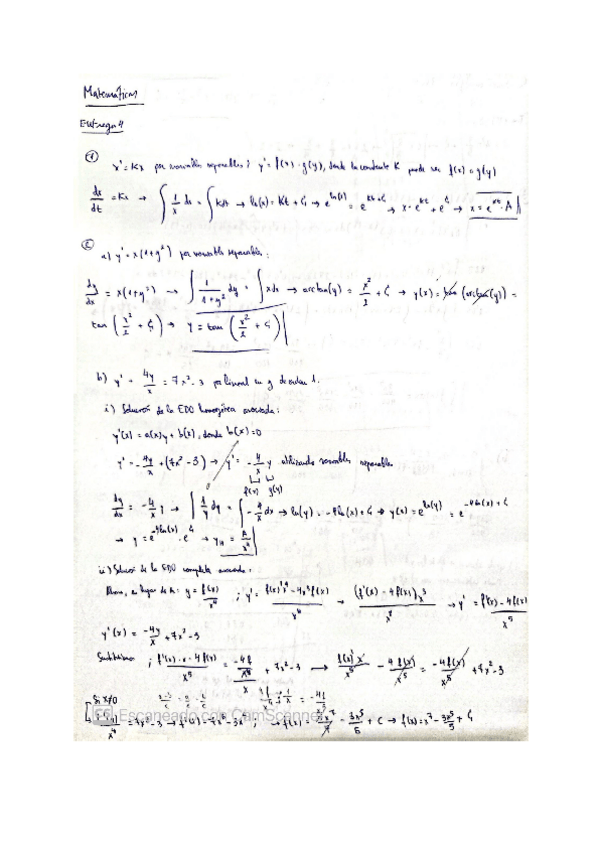 Matemáticas
Entrega 4
①
x' = Kx por variables separables ; y' = f(x) · g(y), donde la constante K puede ser f(x) o g(y)
dx/dt = Kx → ∫ 1/x dx = ∫ K dt → ln(x) = Kt + C₁ → e^ln(x) = e^(Kt+C₁) → x = e^Kt · e^C₁ → x = e^Kt · A
②
a) y' = x(1+y²) por variables separables :
dy/dx = x(1+y²) → ∫ 1/(1+y²) dy = ∫ x dx → arctan(y) = x²/2 + C₁ → y(x) = tan(arctan(y)) =
tan(x²/2 + C₁) → y = tan(x²/2 + C₁)
b) y' + 4y/x = 7x² - 3 por lineal en y de orden 1.
i) Solución de la EDO homogénea asociada :
y'(x) = a(x)y + b(x), donde b(x) = 0
y' = -4y/x + (7x² - 3) → y' = -4/x y utilizando variables separables
f(x) g(y)
dy/dx = -4/x y → ∫ 1/y dy = ∫ -4/x dx → ln(y) = -4ln(x) + C₁ → y(x) = e^ln(y) = e^(-4ln(x) + C₁)
→ y = e^(-4ln(x)) · e^C₁ → y_H = A/x⁴
ii) Solución de la EDO completa asociada :
Ahora, en lugar de A : y = f(x)/x⁴ ; y' = (f'(x)x⁴ - 4x³f(x))/x⁸ → (f'(x) - 4f(x))x³/x⁸ → y' = (f'(x)x - 4f(x))/x⁵
y'(x) = -4y/x + 7x² - 3
Sustituimos ; (f'(x)·x - 4f(x))/x⁵ = -4f/x⁴/x + 7x² - 3 → f'(x)x/x⁵ - 4f(x)/x⁵ = -4f(x)/x⁵ + 7x² - 3
Si x≠0
= -4f/x⁵
f'(x)/x⁴ = 7x² - 3 → f'(x) = 7x⁶ - 3x⁴ ; → f(x) = 7x⁷/7 - 3x⁵/5 + C → f(x) = x⁷ - 3x⁵/5 + C₁
CS Escaneado con CamScanner